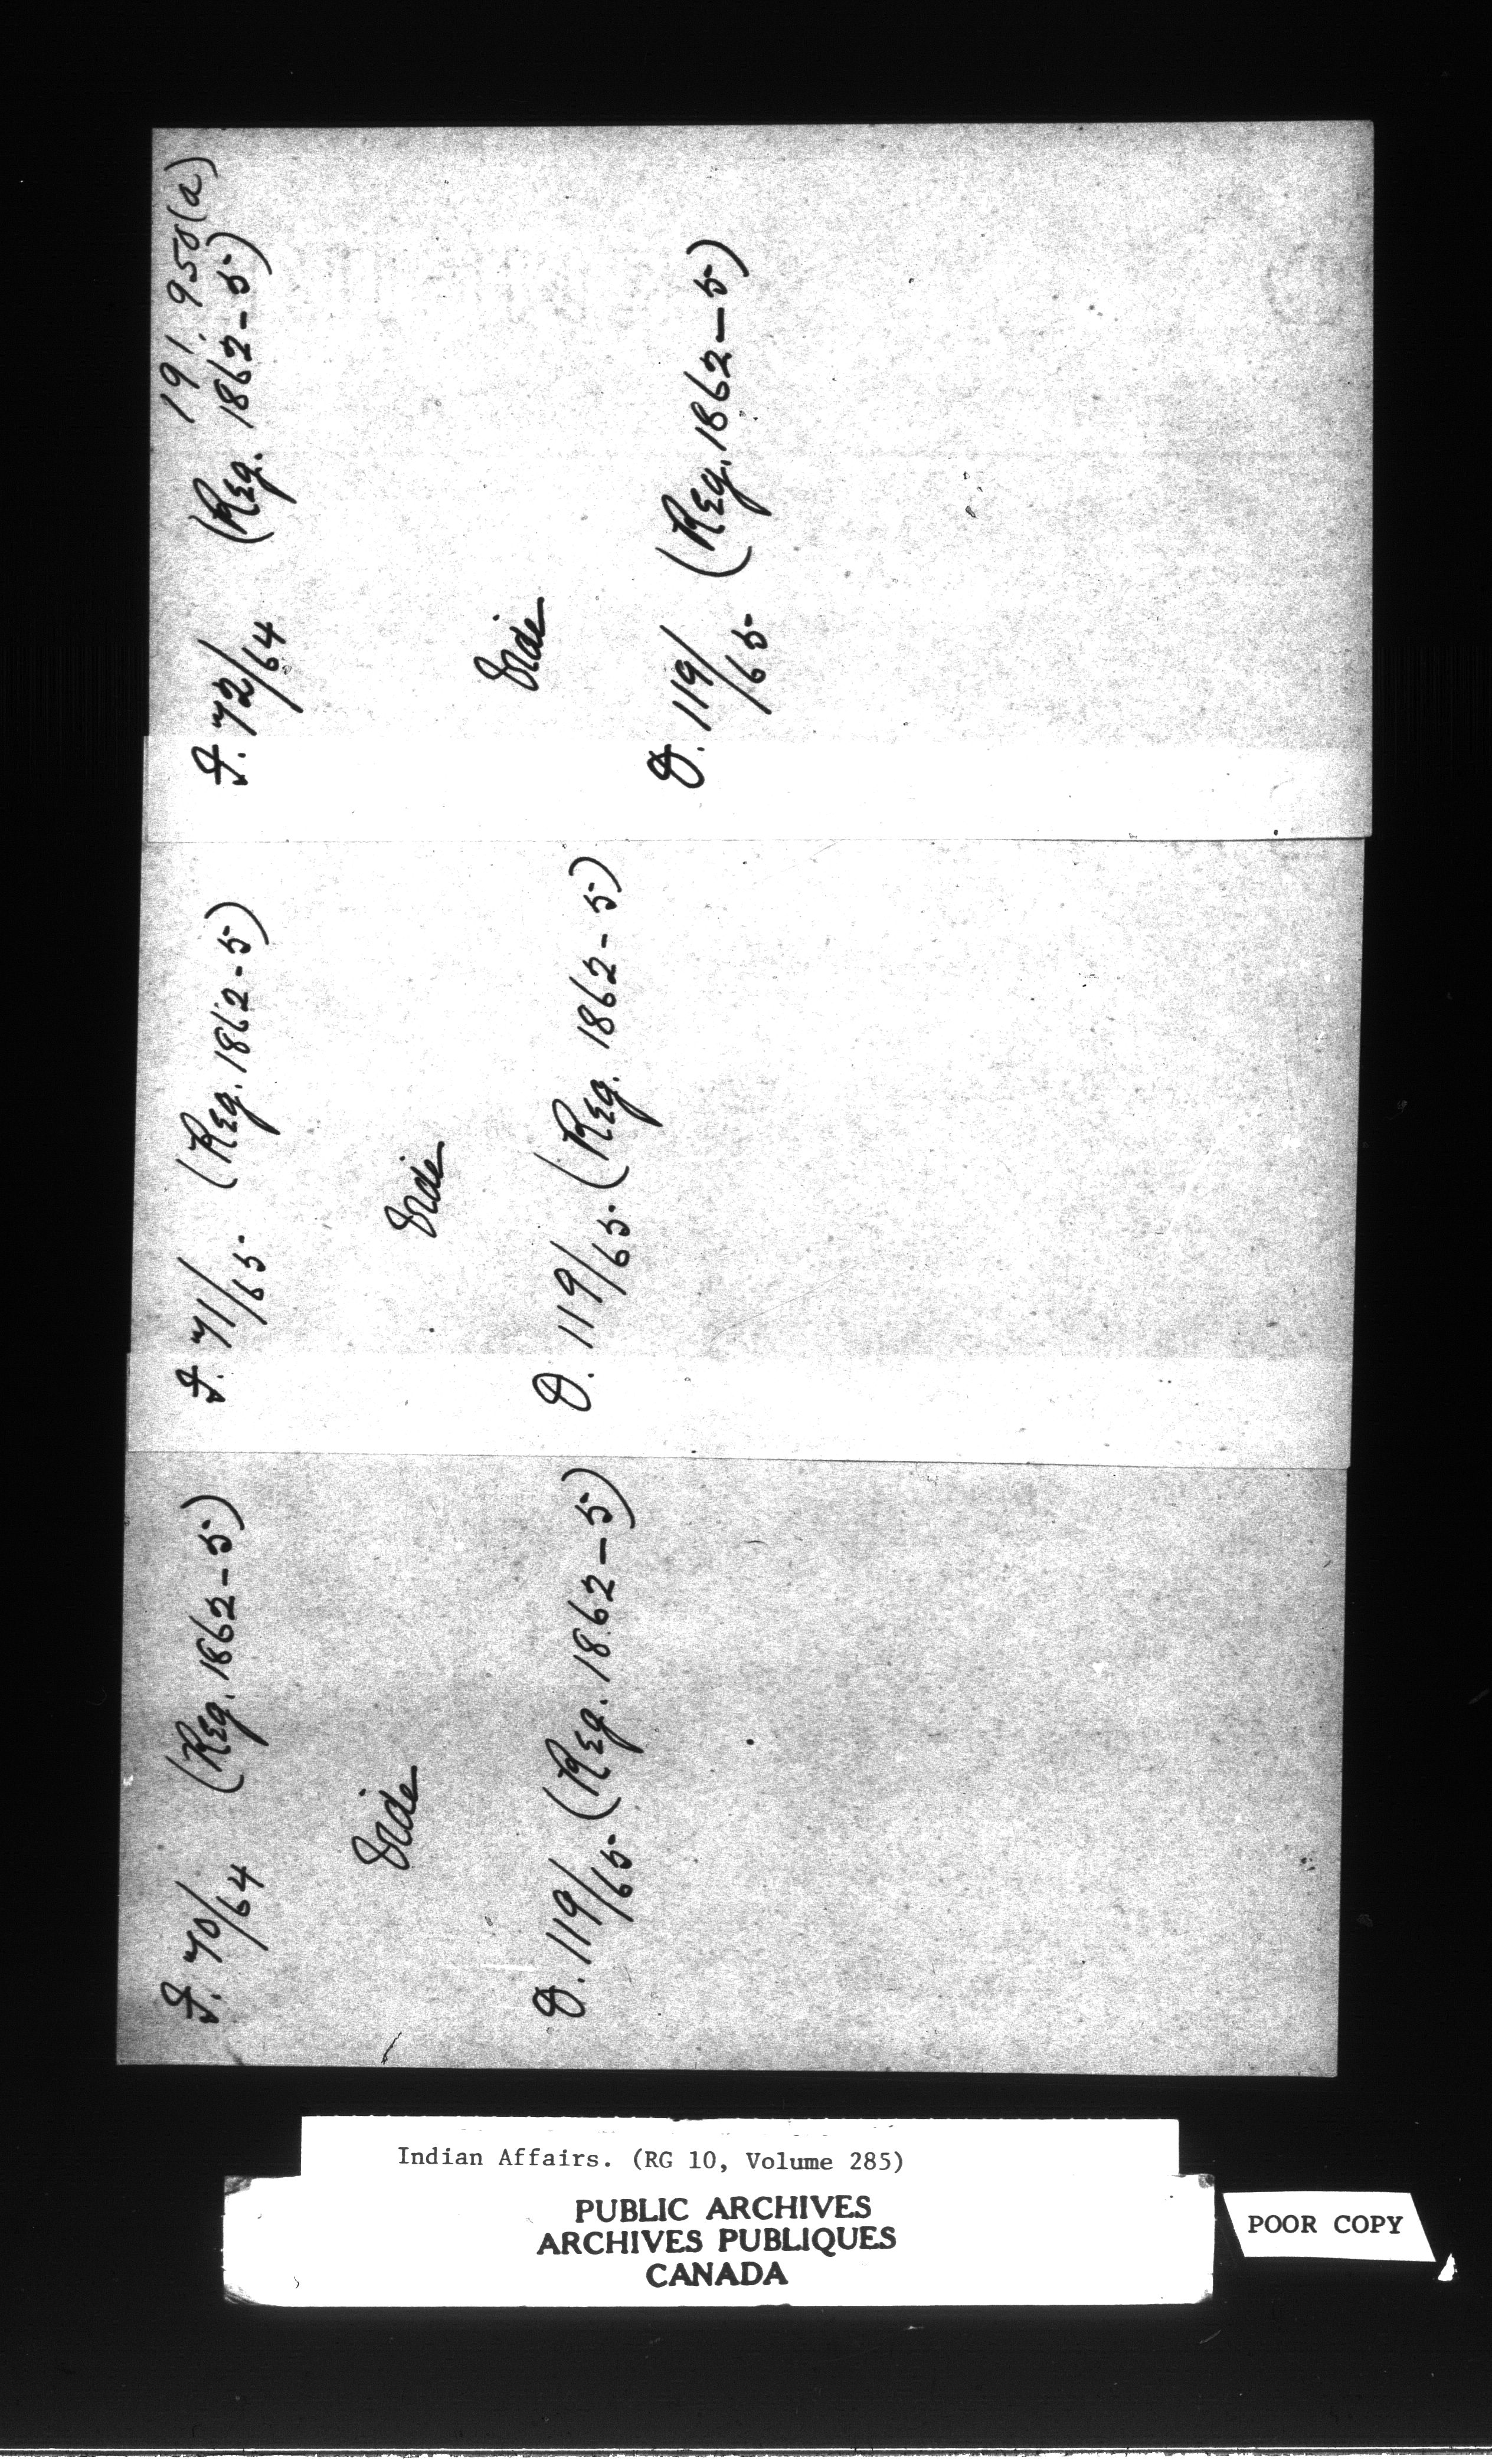 191.958(a)
F. 72/64 (Reg. 1862-5)
Vide
D. 119/65 (Reg. 1862-5)
F. 71/65 (Reg. 1862-5)
Vide
D. 119/65 (Reg. 1862-5)
F. 70/64 (Reg. 1862-5)
Vide
D. 119/65 (Reg. 1862-5)
Indian Affairs. (RG 10, Volume 285)
PUBLIC ARCHIVES
ARCHIVES PUBLIQUES
CANADA
POOR COPY